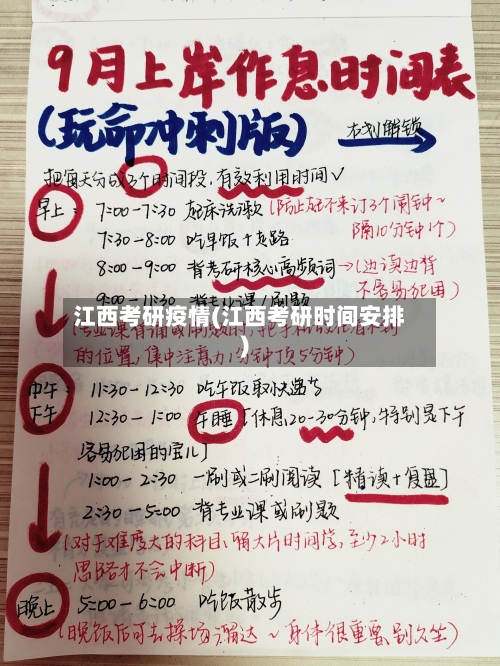 9月上岸作息时间表
(玩命冲刺版) 右划解锁
把每天分成3个时间段,有效利用时间√
早上: 7:00-7:30 起床洗漱(防止起不来订3个闹钟~
隔10分钟1个)
7:30-8:00 吃早饭+走路
8:00-9:00 背考研核心高频词→(边读边背
不容易犯困)
9:00-11:30 背专业课/刷题
江西考研疫情(江西考研时间安排
)
的位置,集中注意力1分钟顶5分钟)
中午: 11:30-12:30 吃午饭取快递等
下午 12:30-1:00 午睡[休息20-30分钟,特别是下午
容易犯困的宝儿]
1:00-2:30 一刷或二刷阅读[精读+复盘]
2:30-5:00 背专业课或刷题
(对于难度大的科目,留大片时间学,至少2小时
思路才不会中断)
晚上: 5:00-6:00 吃饭散步
(晚饭后可去操场溜达~身体很重要,别久坐)